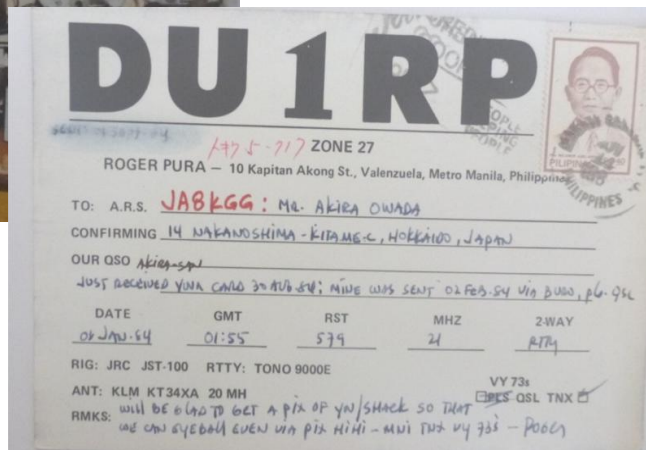 DU1RP
ZONE 27
ROGER PURA — 10 Kapitan Akong St., Valenzuela, Metro Manila, Philippines
TO: A.R.S. JA8KGG: MR. AKIRA OWADA
CONFIRMING 14 NAKANOSHIMA-KITAME-C, HOKKAIDO, JAPAN
OUR QSO AKIRA-SAN
JUST RECEIVED YOUR CARD 30 AUG 84; MINE WAS SENT 02 FEB-84 VIA BURO, QSL
DATE GMT RST MHZ 2-WAY
JAN-84 01:55 579 21 RTTY
RIG: JRC JST-100 RTTY: TONO 9000E
VY 73s
ANT: KLM KT34XA 20 MH PLS QSL TNX
RMKS: WILL BE GLAD TO GET A PIX OF YR/SHACK SO THAT
WE CAN EYEBALL EVEN VIA PIX HIHI - MNI TNX VY 73s -
PILIPINAS
PHILIPPINES